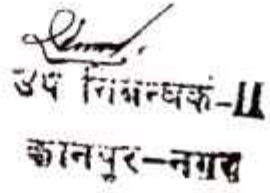 उप निबन्धक-II
कानपुर-नगर